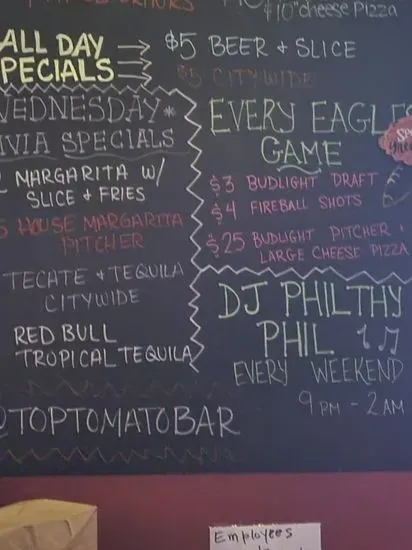 $10 "cheese Pizza
ALL DAY
PECIALS
$5 BEER + SLICE
$5 CITYWIDE
WEDNESDAY*
IVIA SPECIALS
MARGARITA W/
SLICE + FRIES
HOUSE MARGARITA
PITCHER
TECATE + TEQUILA
CITYWIDE
RED BULL
TROPICAL TEQUILA
EVERY EAGLES
GAME
$3 BUDLIGHT DRAFT
$4 FIREBALL SHOTS
$25 BUDLIGHT PITCHER +
LARGE CHEESE PIZZA
DJ PHILTHY
PHIL
EVERY WEEKEND
9PM - 2AM
@TOPTOMATOBAR
Employees